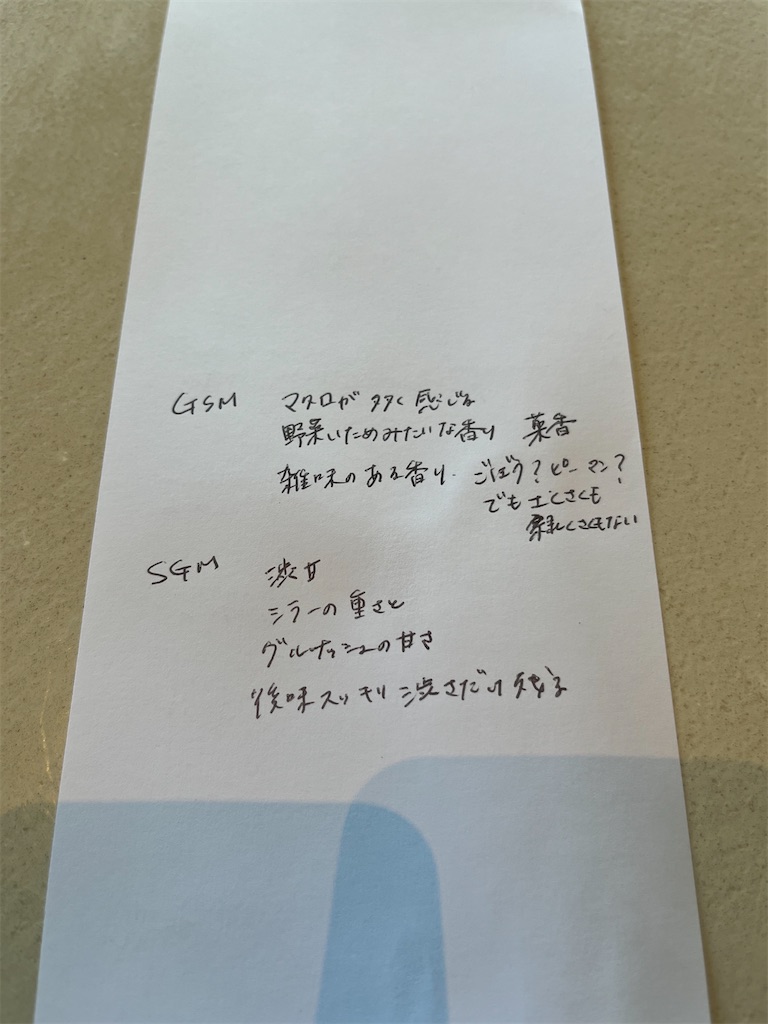 GSM マタロが タタく 感じる
野菜いためみたいな香り 薬香
雑味のある香り. ごぼう?ピーマン?
でも 土くさくも
緑くさくもない
SGM 渋甘
シラーの 重さと
グルナッシュの甘さ
後味スッキリ 渋さだけ残る